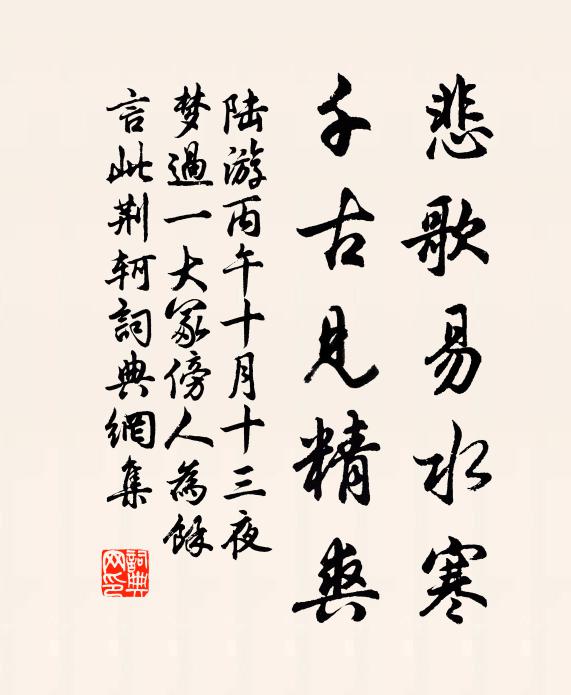 悲歌易水寒
千古見精爽
陆游丙午十月十三夜
梦過一大冢傍人為餘
言此荆轲詞典網集
詞典网印